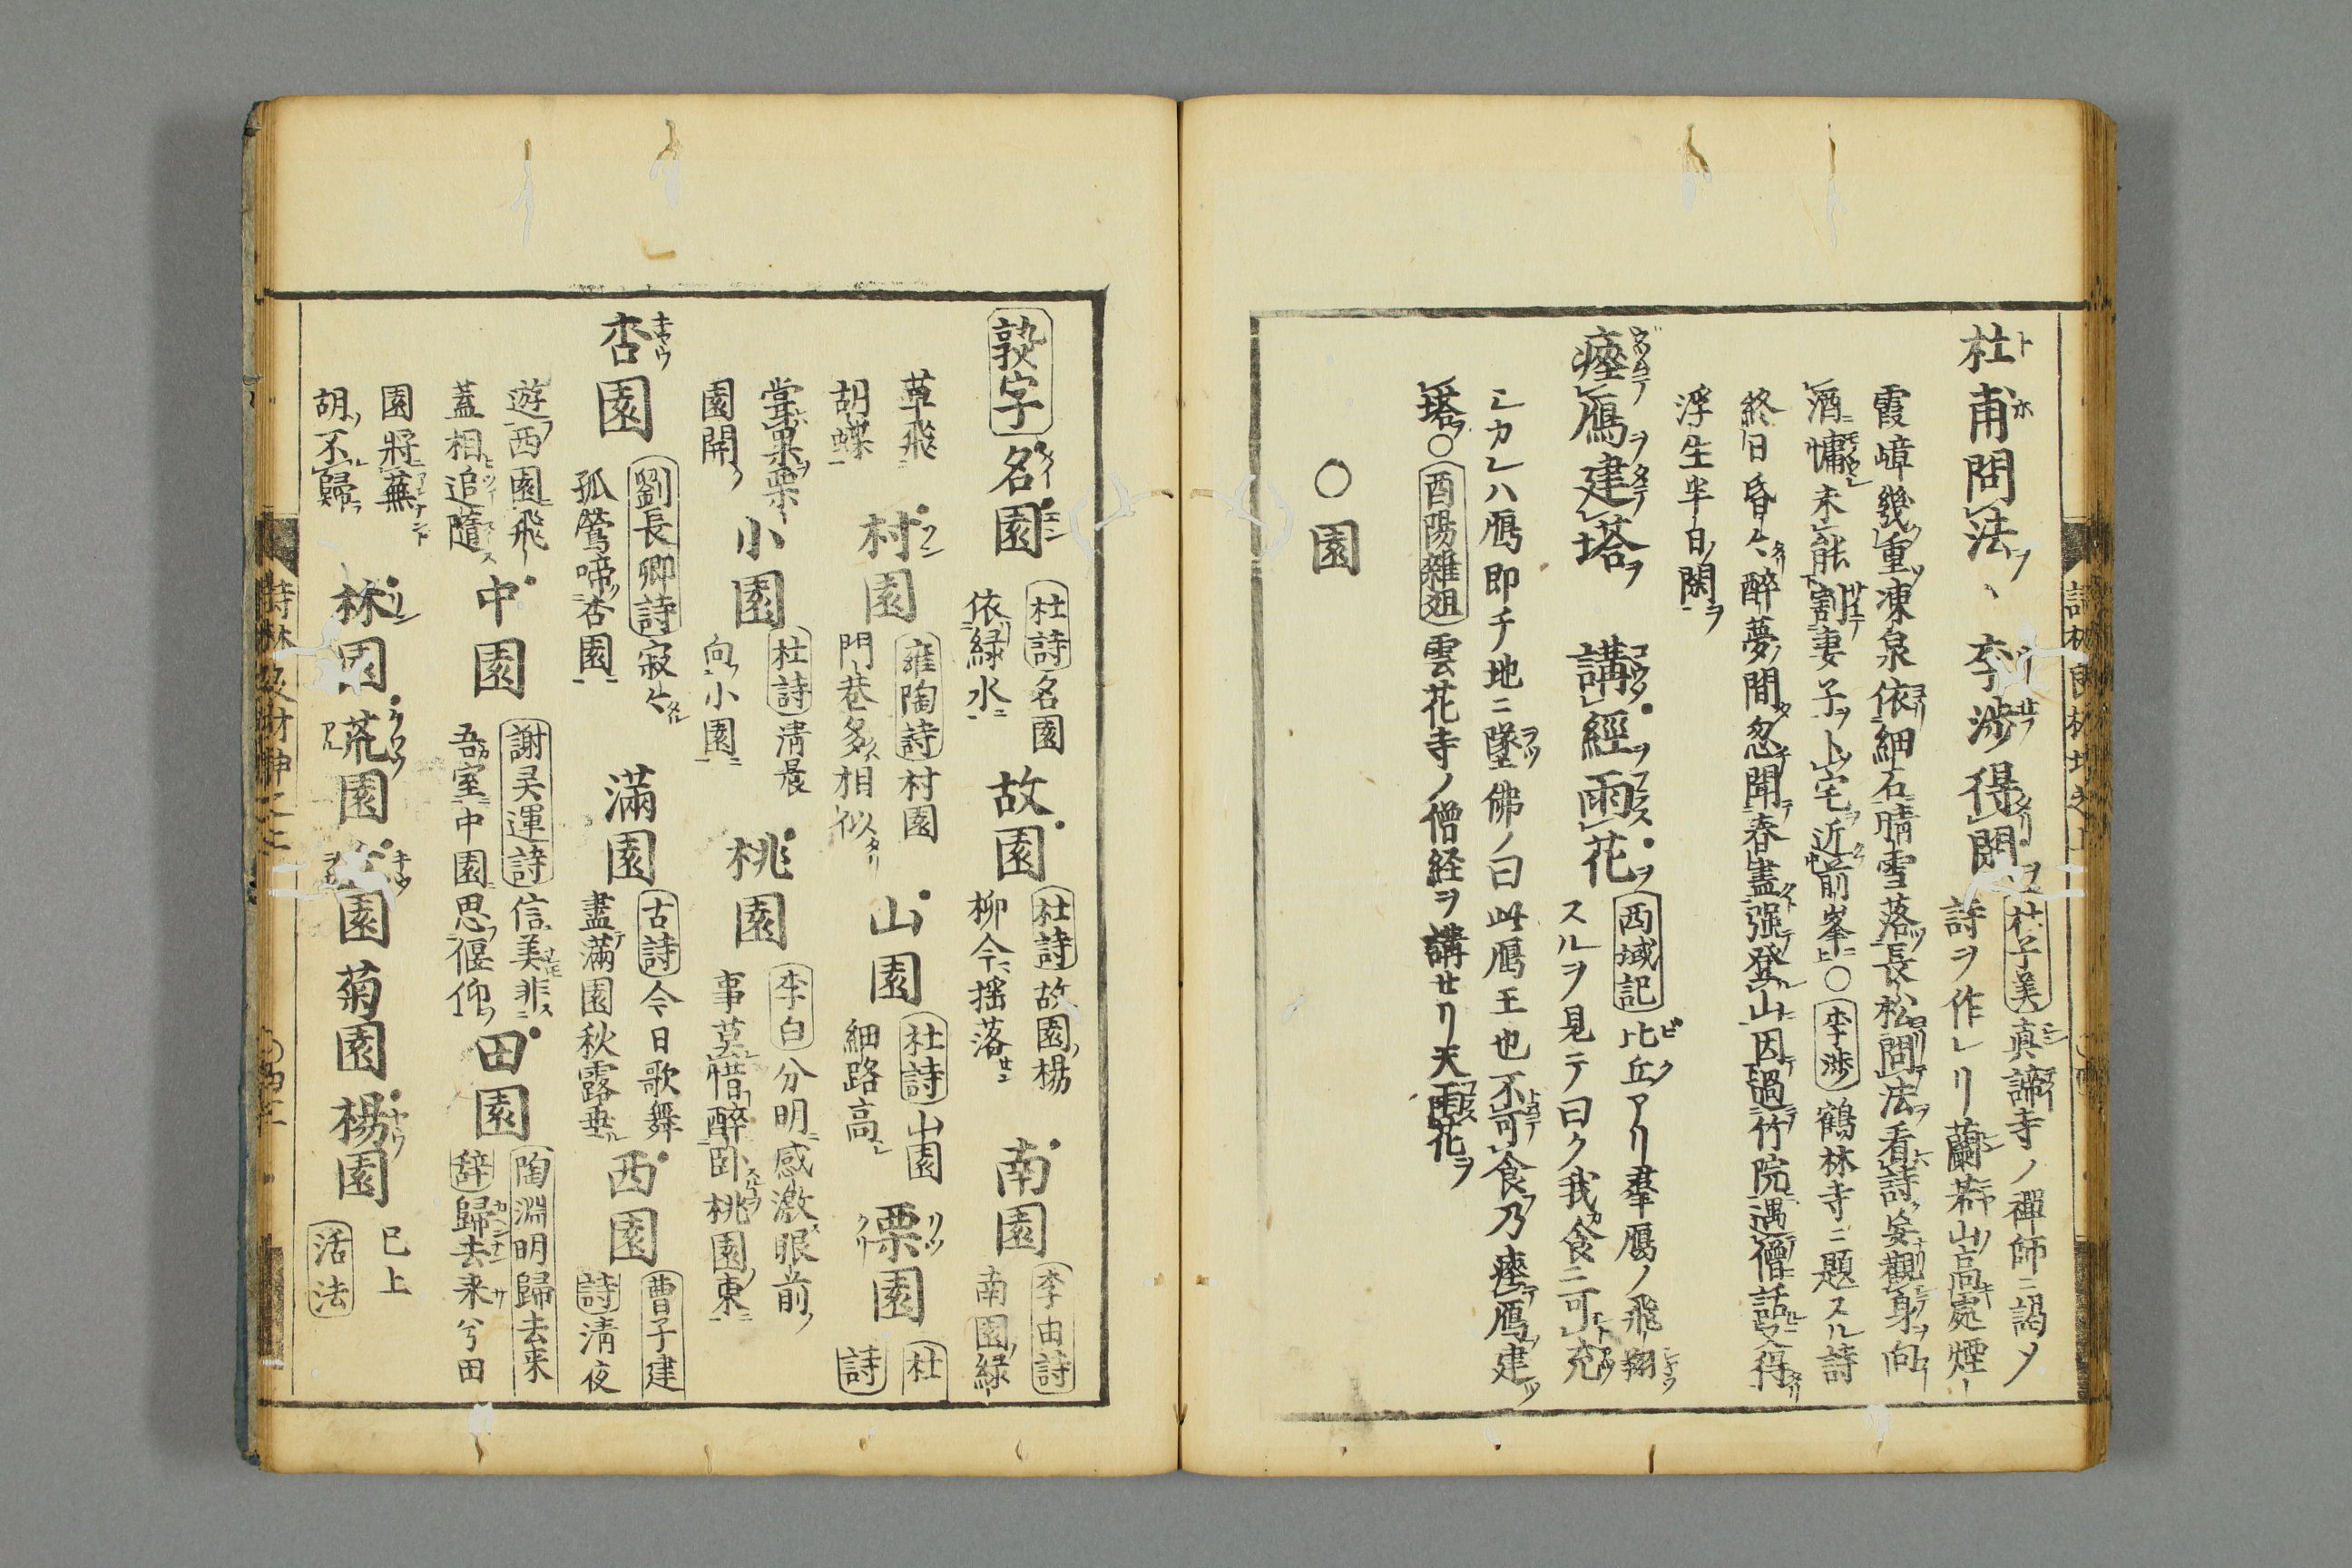 杜甫問法、李渉得閑
杜子美真諦寺ノ禪師ニ謁メ
詩ヲ作レリ蘭若山高處煙
霞嶂幾重凍泉依細石晴雪落長松問法看詩妄觀身向
酒慵未能割妻子卜宅近前峯○李渉鶴林寺ニ題スル詩
終日昏々醉夢間忽聞春盡强登山因過竹院遇僧話又得
浮生半日閑
瘞鴈建塔 講經雨花
西域記比丘アリ羣鴈ノ飛翔
スルヲ見テ曰ク我食ニ可充
シカレハ鴈即チ地ニ墜佛ノ曰此鴈王也不可食乃瘞鴈建
塔○酉陽雜俎雲花寺ノ僧経ヲ講セリ天雨花ヲ
○園
熟字 名園 杜詩名園
依緑水
故園 杜詩故園楊
柳今揺落
南園 李由詩
南園緑
草飛
胡蝶
村園 雍陶詩村園
門巷多相似
山園 杜詩山園
細路高
栗園 杜
詩
嘗果栗
園開
小園 杜詩清晨
向小園
桃園 李白分明感激眼前
事莫惜醉卧桃園東
杏園 劉長卿詩寂々
孤鶯啼杏園
滿園 古詩今日歌舞
盡滿園秋露垂
西園 曹子建
詩清夜
遊西園飛
蓋相追隨
中園 謝灵運詩信美非
吾室中園思偃仰
田園 陶淵明歸去来
辞歸去来兮田
園將蕪
胡不歸
林園 荒園 園 菊園 楊園 已上
活法